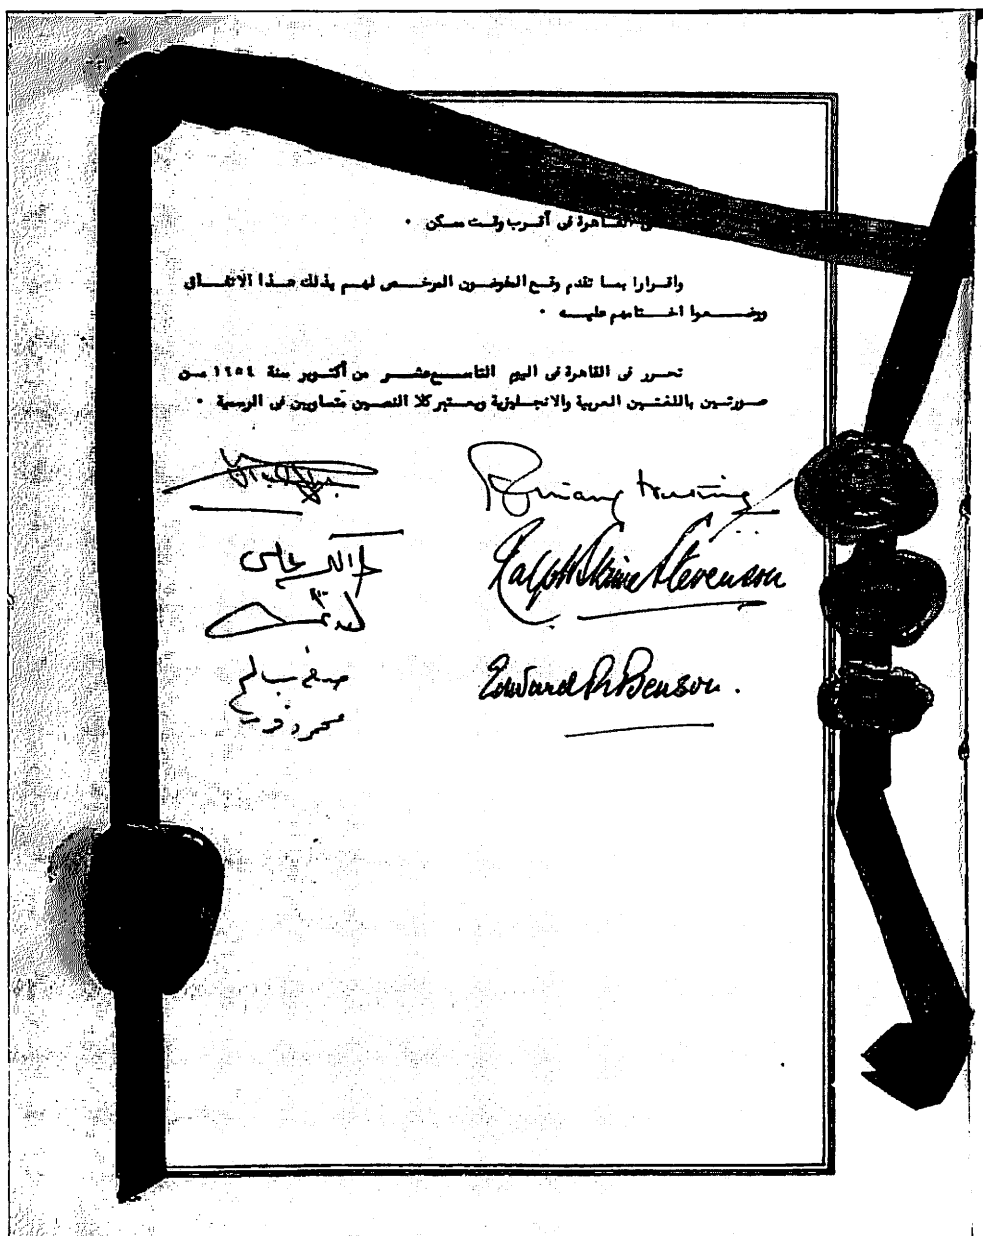 القاهرة فى أقرب وقت ممكن ٠
واقرارا بما تقدم وقع المفوضون المرخص لهم بذلك هذا الاتفاق
ووضعوا اختامهم عليه ٠
تحرر فى القاهرة فى اليوم التاسع عشر من أكتوبر سنة ١٩٥٤ من
صورتين باللغتين العربية والانجليزية ويعتبر كلا النصين متساويين فى الرسمية ٠
Ralph Skrine Stevenson
صلاح سالم
محمود فوزى